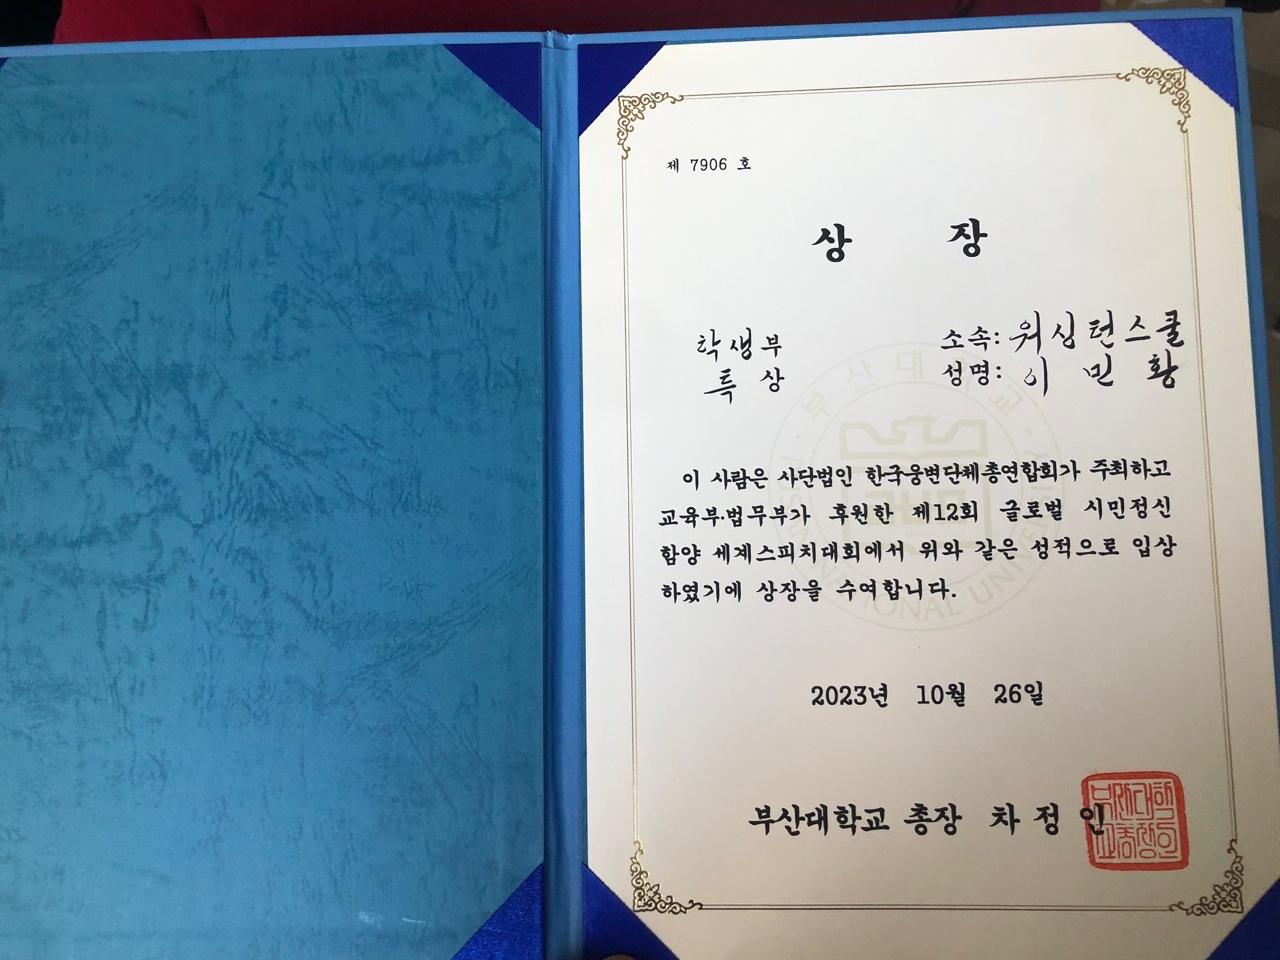 제 7906 호
상 장
학생부
특 상
소속: 워싱턴스쿨
성명: 이 민 황
이 사람은 사단법인 한국웅변단체총연합회가 주최하고
교육부·법무부가 후원한 제12회 글로벌 시민정신
함양 세계스피치대회에서 위와 같은 성적으로 입상
하였기에 상장을 수여합니다.
2023년 10월 26일
부산대학교 총장 차 정 인
부산대학교
NATIONAL UNIVERSITY